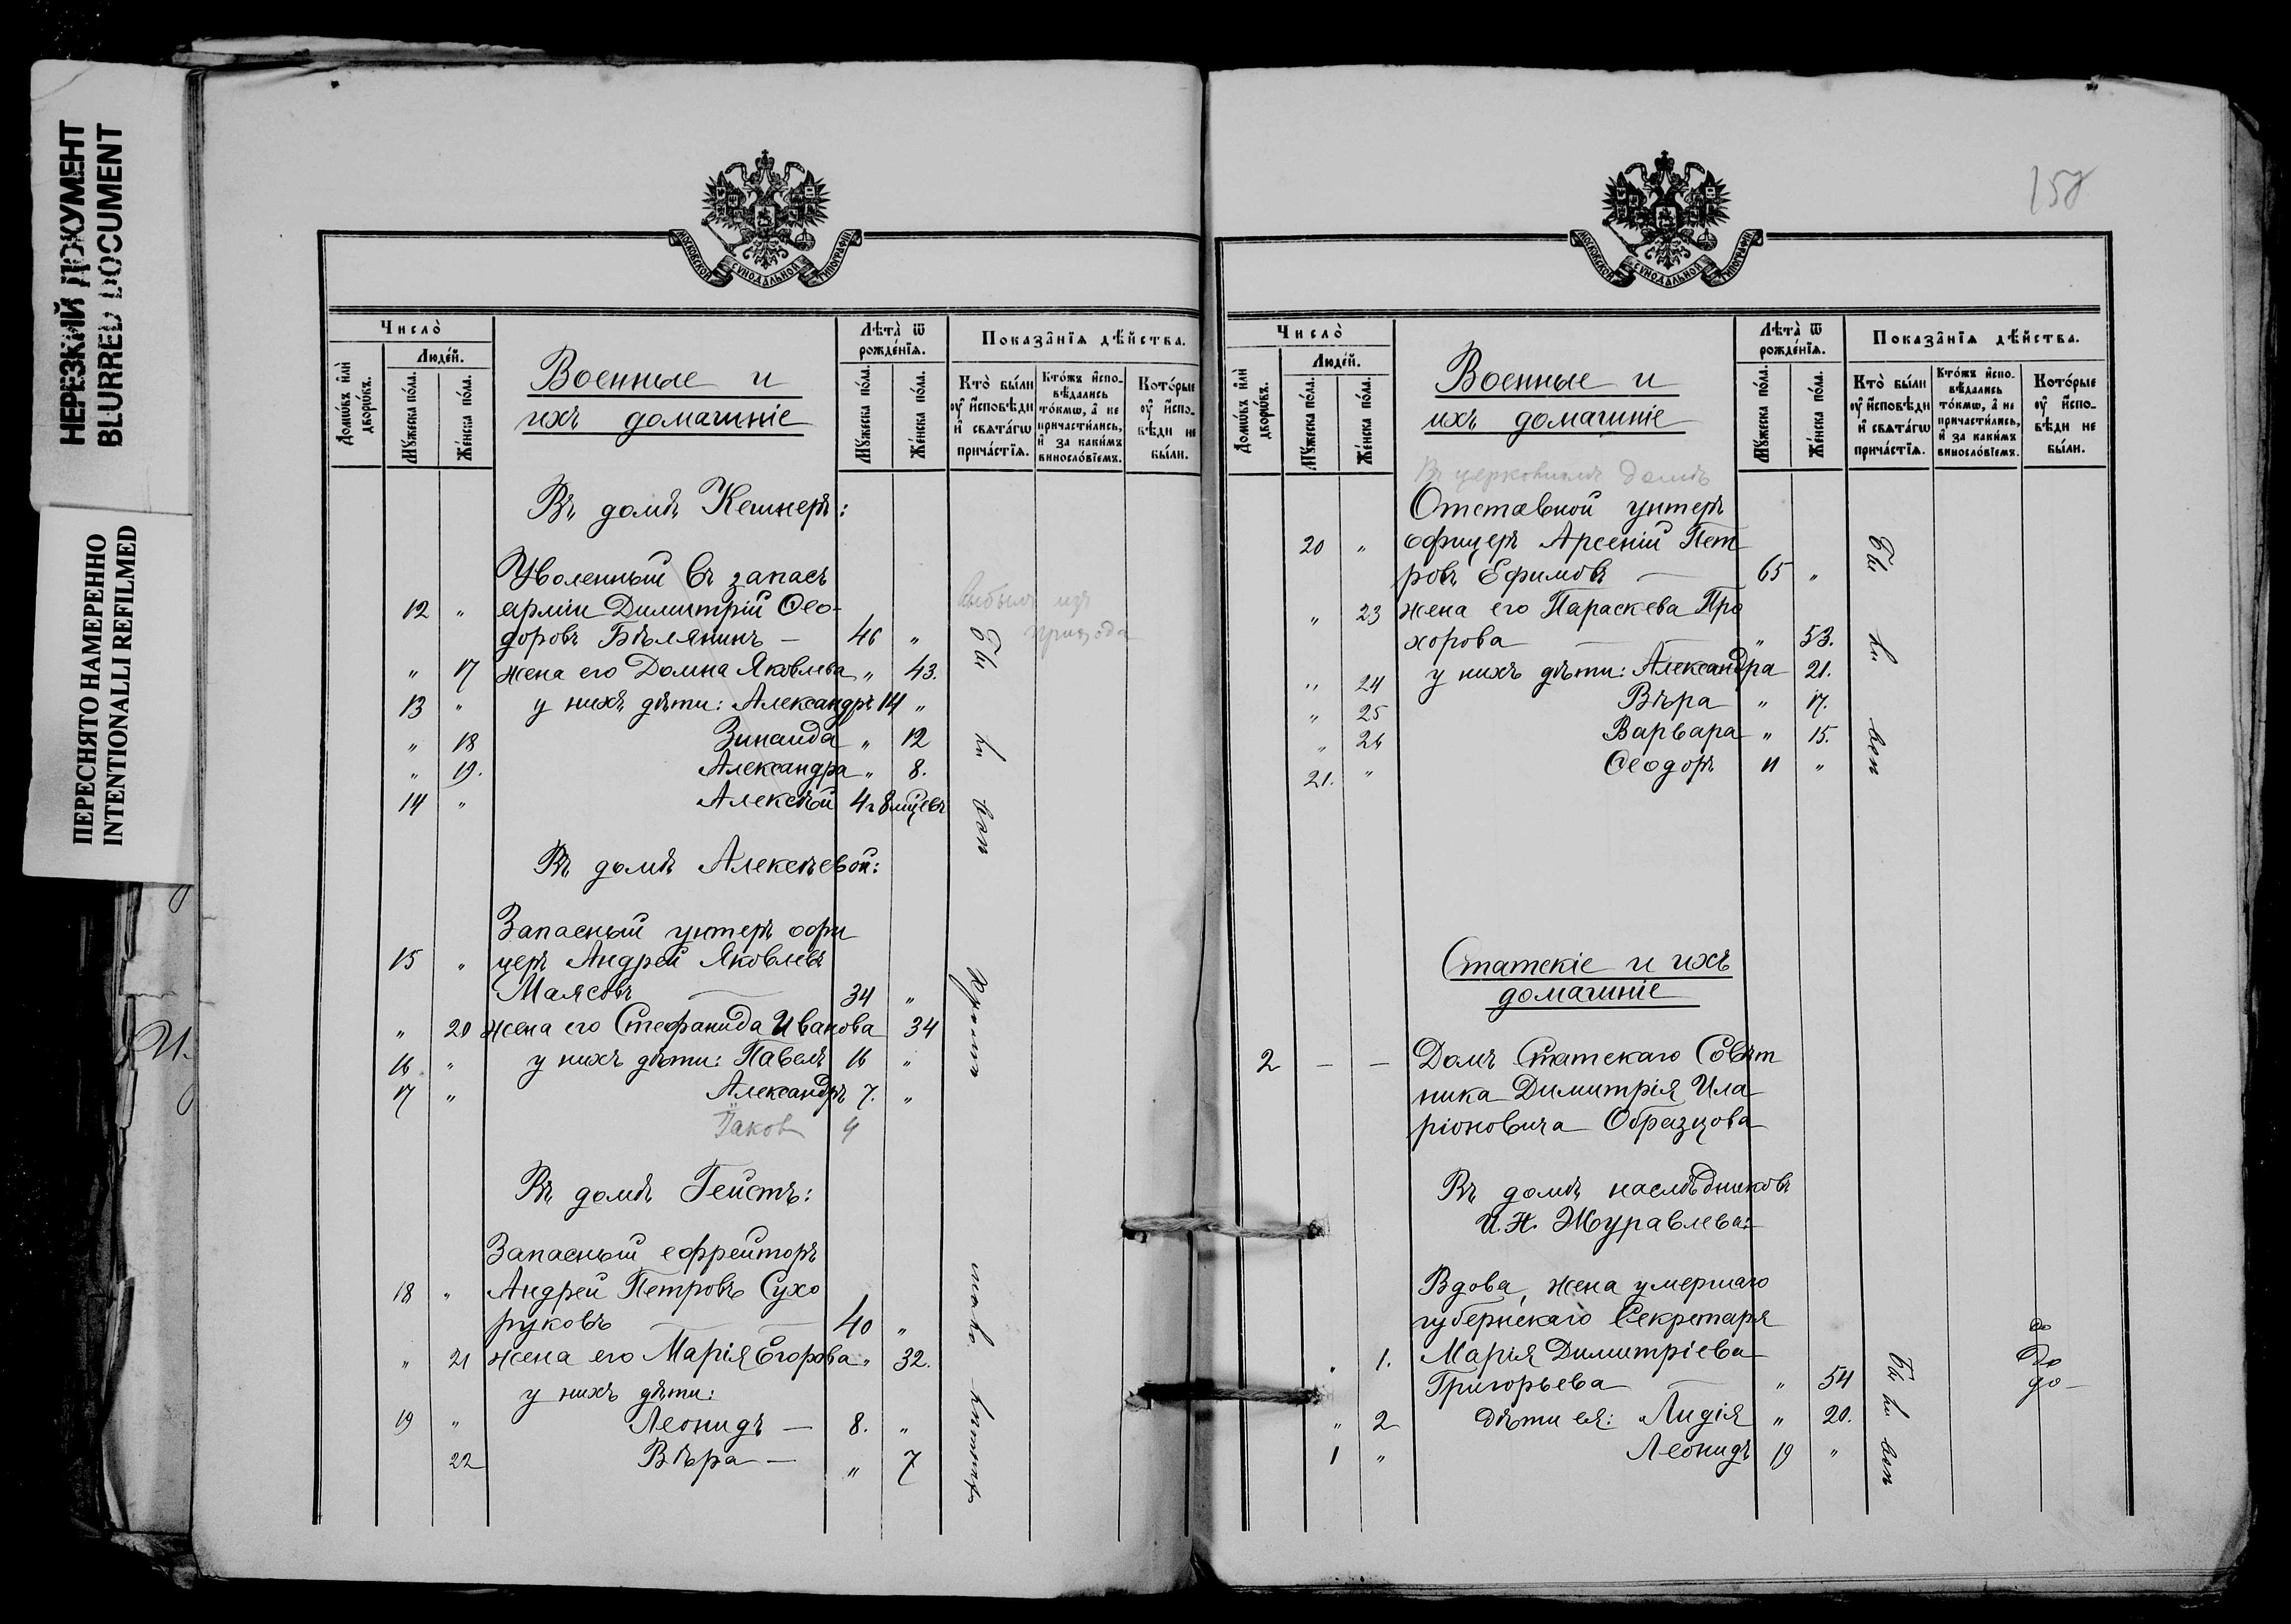 НЕРЕЗКИЙ ДОКУМЕНТ
BLURRED DOCUMENT
ПЕРЕСНЯТО НАМЕРЕННО
INTENTIONALLI REFILMED
МОСКОВСКОЙ СѴНОДАЛЬНОЙ ТИПОГРАФІИ
Число̀
Людей.
Домѡвъ и҆лѝ дворѡвъ.
Мꙋжеска по́ла.
Же́нска по́ла.
Военные и
ихъ домашніе
Лѣта̀ ѿ рожде́нїѧ.
Мꙋжеска по́ла.
Же́нска по́ла.
Показа̑нїѧ дѣ́йства.
Кто̀ бы́ли оу҆ и҆сповѣди и҆ свѧта́гѡ прича́стїѧ.
Кто́жъ и҆спо-
вѣдались
то́кмѡ, а҆ не
причасти́лись,
и҆ за каки́мъ
винословїемъ.
Кото́рые оу҆ и҆спо-
вѣди не
бы́ли.
Въ домѣ Кешнеръ:
Уволенный въ запасъ
12 " арміи Димитрій Ѳео-
доровъ Бѣлянинъ — 46 "
выбыли изъ
прихода
" 17 жена его Домна Яковлева " 43.
13 " у нихъ дѣти: Александръ 14 "
" 18 Зинаида " 12
" 19. Александра " 8.
14 " Алексѣй 4 г 8 мѣцевъ
Бы ли вси
Въ домѣ Алексѣевой:
Запасный унтеръ офи
15 " церъ Андрей Яковлевъ
Малясовъ — 34 "
" 20 жена его Стефанида Иванова 34
16 " у нихъ дѣти: Павелъ 16 "
17 " Александръ 7. "
Іаковъ 4
Въ домѣ Гейстъ:
Запасный ефрейторъ
18 " Андрей Петровъ Сухо
руковъ — — 40 "
" 21 жена его Марія Егорова " 32.
у нихъ дѣти:
19 " Леонидъ — 8. "
22 Вѣра — " 7
158
МОСКОВСКОЙ СѴНОДАЛЬНОЙ ТИПОГРАФІИ
Число̀
Людей.
Домѡвъ и҆лѝ дворѡвъ.
Мꙋжеска по́ла.
Же́нска по́ла.
Военные и
ихъ домашніе
Лѣта̀ ѿ рожде́нїѧ.
Мꙋжеска по́ла.
Же́нска по́ла.
Показа̑нїѧ дѣ́йства.
Кто̀ бы́ли оу҆ и҆сповѣди и҆ свѧта́гѡ прича́стїѧ.
Кто́жъ и҆спо-
вѣдались
то́кмѡ, а҆ не
причасти́лись,
и҆ за каки́мъ
винословїемъ.
Кото́рые оу҆ и҆спо-
вѣди не
бы́ли.
Въ церковномъ домѣ
Отставной унтеръ
20 " офицеръ Арсеній Пет
ровъ Ефимовъ — 65 "
" 23 жена его Параскева Про
хорова — " 53.
" 24 у нихъ дѣти: Александра 21.
" 25 Вѣра " 17.
" 26 Варвара " 15.
21. " Ѳеодоръ 11 "
Бы ли вси
Статскіе и ихъ
домашніе
2 — — Домъ Статскаго Совѣт
ника Димитрія Ила
ріоновича Образцова
Въ домѣ наслѣдниковъ
И. Н. Журавлева:
Вдова, жена умершаго
губернскаго Секретаря
" 1. Марія Димитріева
Григорьева — " 54
" 2 дѣти ея: Лидія " 20.
1 " Леонидъ 19 "
Бы ли вси
до
до
до —